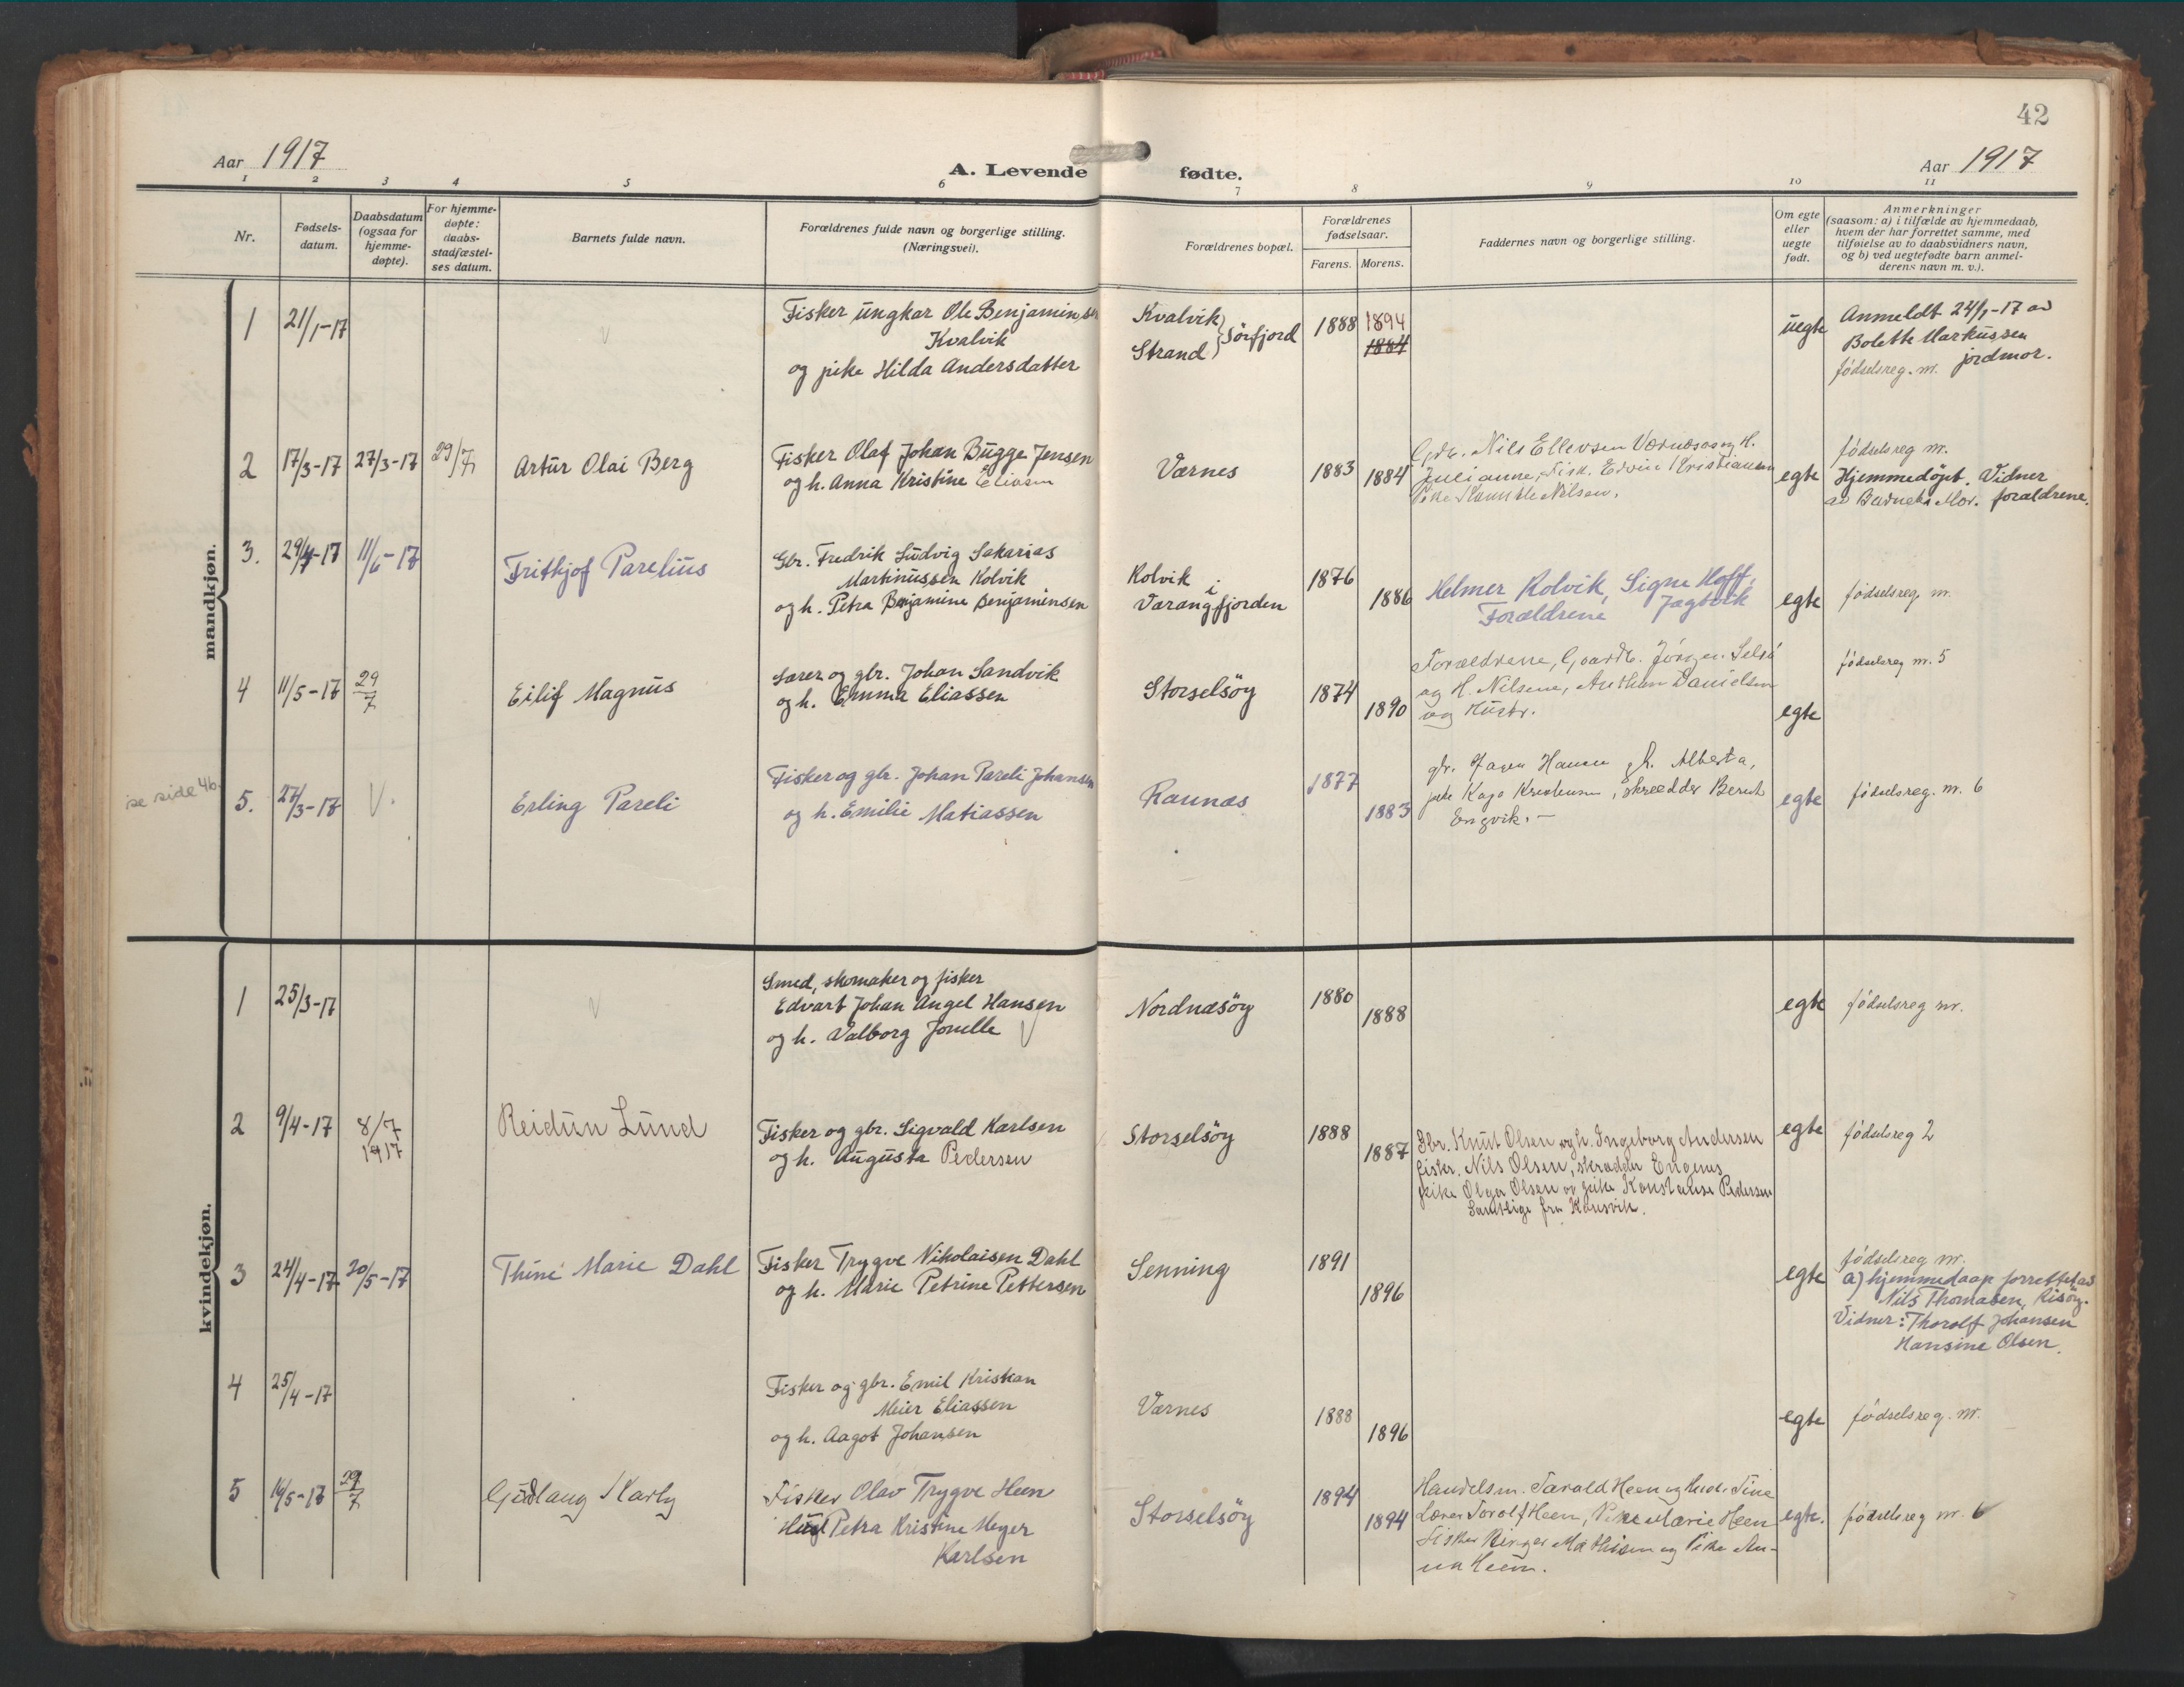 42
Aar 1917
A. Levende fødte.
Aar 1917
1 2 3 4 5 6 7 8 9 10 11
Nr.
Fødsels-
datum.
Daabsdatum
(ogsaa for
hjemme-
døpte).
For hjemme-
døpte:
daabs-
stadfæstel-
ses datum.
Barnets fulde navn.
Forældrenes fulde navn og borgerlige stilling.
(Næringsvei).
Forældrenes bopæl.
Forældrenes
fødselsaar.
Farens. Morens.
Faddernes navn og borgerlige stilling.
Om egte
eller
uegte
født.
Anmerkninger
(saasom: a) i tilfælde av hjemmedaab,
hvem der har forrettet samme, med
tilføielse av to daabsvidners navn,
og b) ved uegtefødte barn anmel-
derens navn m. v.).
mandkjøn.
1
21/1-17
Fisker ungkar Ole Benjaminsen
Kvalvik
og pike Hilda Andersdatter
Kvalvik
Strand } Sörfjord
1888
1894
1884
uegte
Anmeldt 24/1-17 av
Bolette Markussen
fødselsreg. nr. jordmor.
2
17/3-17
27/3-17
29/7
Artur Olai Berg
Fisker Olaf Johan Bugge Jensen
og h. Anna Kristine Eliasen
Værnes
1883
1884
Nils Ellevsen Værnes og H.
Julianne, Fisk. Edvin Kristiansen
Pike Nilsen.
egte
fødselsreg nr.
Hjemmedöpt. Vidner
av Barnets Mor. forældrene.
3.
29/4-17
11/6-17
Frithjof Parelius
Gbr. Fredrik Ludvig Sakarias
Martinussen Kolvik
og h. Petra Benjamine Benjaminsen
Kolvik i
Værangfjorden
1876
1886
Helmer Kolvik, Signe Hoff,
Forældrene Jægtvik
egte
fødselsreg nr.
4
11/5-17
29/7
Eilif Magnus
Lærer og gbr. Johan Sandvik
og h. Emma Eliassen
Storselsöy
1874
1890
Forældrene, Gaardb. Jörgen Selsö
og H. Nilsene, Anthon Danielsen
og Hustr.
egte
fødselsreg nr. 5
se side 46.
5.
27/3-17
V.
Erling Pareli
Fisker og gbr. Johan Pareli Johansen
og h. Emilie Matiassen
Raunes
1877
1883
gbr. Hansen h. Alberta,
pike Kaja, skrædder Bernt
Engvik. —
egte
fødselsreg. nr. 6
kvindekjøn.
1
25/3-17
Smed, skomaker og fisker
Edvart Johan Angel Hansen
og h. Valborg Jonette
Nordnæsöy
1880
1888
egte
fødselsreg nr.
2
9/4-17
8/7
1917
Reidun Lund
Fisker og gbr. Sigvald Karlsen
og h. Augusta Pedersen
Storselsöy
1888
1887
Gbr. Knut Olsen og h. Ingeborg Andersen
fisker. Nils Olsen, skrædder Eugenus
pike Olga Olsen og pike Konstanse Pedersen
Samtlige fra Kansvik.
egte
fødselsreg 2
3
24/4-17
20/5-17
Thine Marie Dahl
Fisker Trygve Nikolaisen Dahl
og h. Marie Petrine Pettersen
Senning
1891
1896
egte
fødselsreg nr.
a) hjemmedaap forrettet av
Nils Thomasen, Risöy.
Vidner: Thorolf Johansen
Hansine Olsen.
4
25/4-17
Fisker og gbr. Emil Kristian
Meier Eliassen
og h. Aagot Johansen
Værnes
1888
1896
egte
fødselsreg. nr.
5
16/5-17
29/7
Gudlaug Karly
Fisker Olav Trygve Heen
Petra Kristine Meyer
Karlsen
Storselsöy
1894
1894
Handelsm. Tarald Heen og Hust. Tina
Lærer Torolf Heen, Pike Marie Heen
Fisker Birger Mathisen og Pike An-
na Heen.
egte.
fødselsreg nr. 6